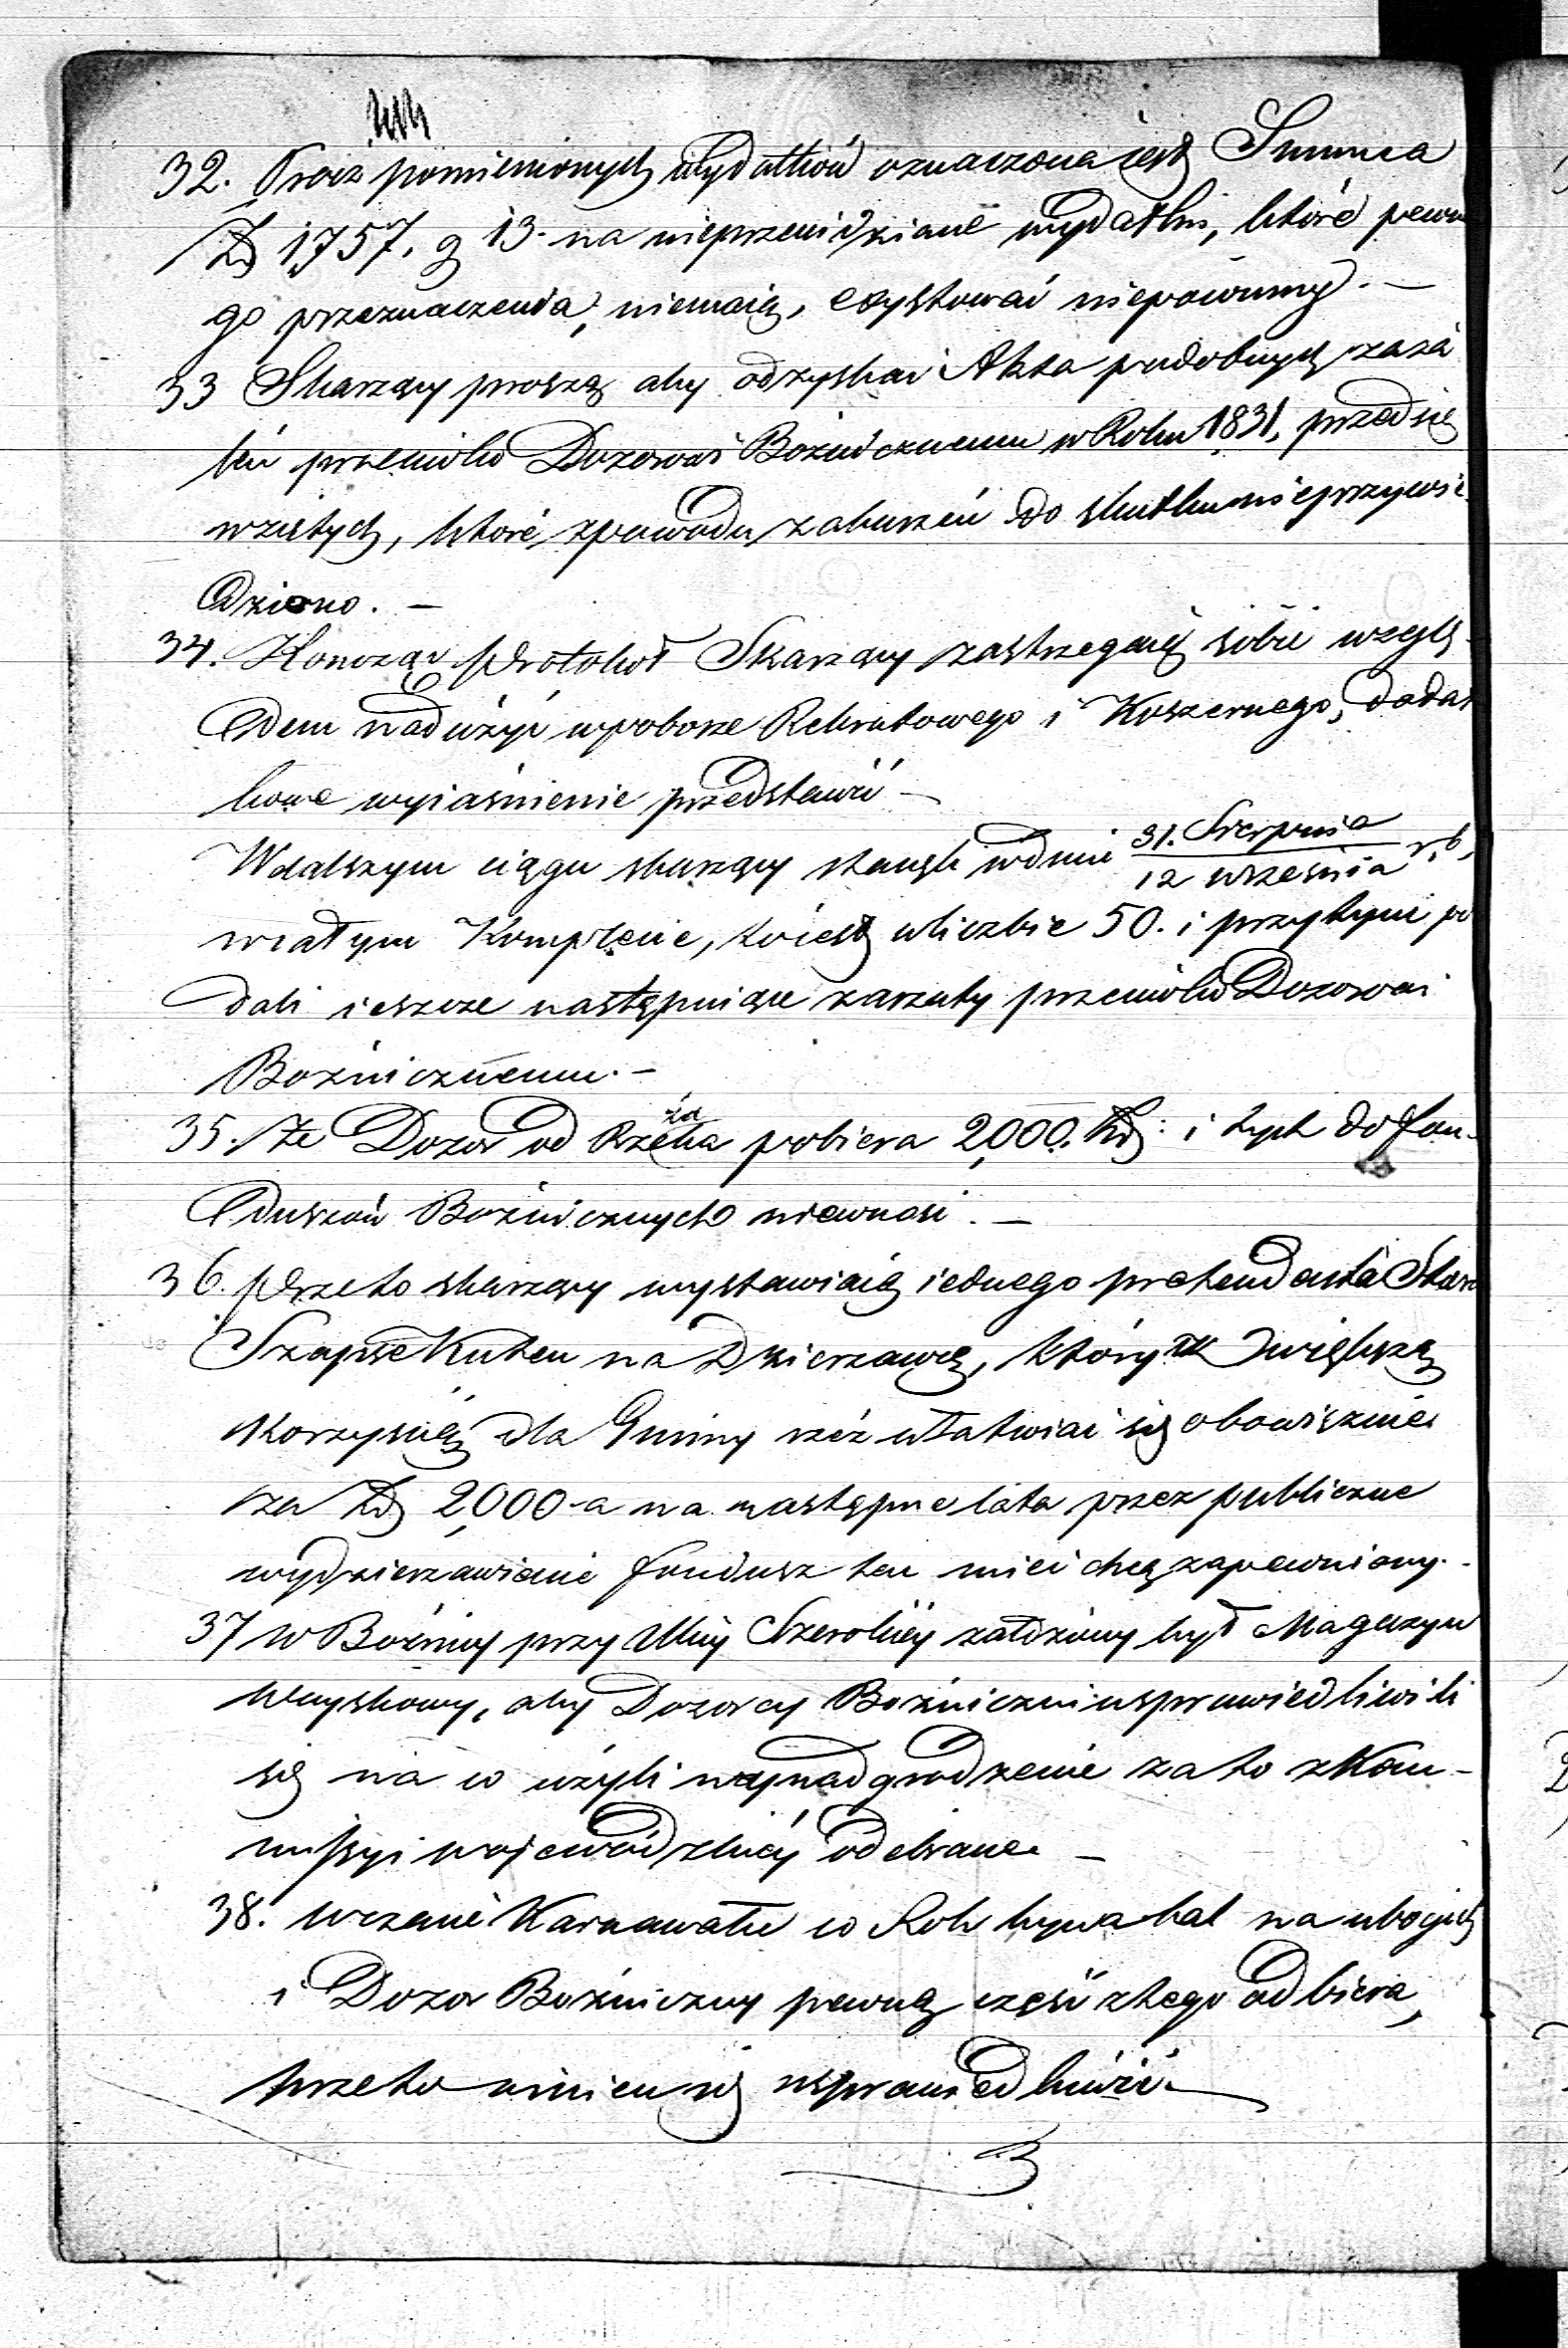 32. Procz pomienionych wydatków oznaczona iest Summa
Zł 1757. g 13. na nieprzewidziane wydatki, które pewne
go przeznaczenia niemaią, exystować niepowinny. —
33 Skarzący proszą aby odzyskać Akta podobnych zaża
leń przeciwko Dozorowi Bożnicznemu w Roku 1831, przedsię
wziętych, które zpowodu zaburzeń do skutku nieprzywie
dziono. —
34. Kończąc Protokoł Skarzący zastrzegaią sobie wzglę-
dem nadużyć w poborze Rekrutowego i Koszernego, dodat
kowe wyiaśnienie przedstawić —
W dalszym ciągu skarzący stanęli w dniu 31. Sierpnia / 12 września r. b,
w całym Komplecie, to iest w liczbie 50. i przytym po
dali ieszcze następuiące zarzuty przeciwko Dozorowi
Bożnicznemu. —
35. Ze Dozor od Rzezaka pobiera 2,000. Zł: i tych do fun-
duszów Bożnicznych niewnosi. —
36. Przeto skarzący wystawiaią iednego pretendenta
Szapse Kuten na Dzierzawcę, który z większą
Korzyścią dla Gminy rzeź ułatwiać się obowiązuie
za Zł 2,000 a na następne lata przez publiczne
wydzierzawienie fundusz ten mieć chcą zapewniony. -
37 W Bożnicy przy Ulicy Szerokiéy założony był Magazyn
Woyskowy, aby Dozorcy Bożniczni usprawiedliwili
się na co użyli wynadgrodzenie za to z Kom-
missyi wojewódzkiéy odebrane —
38. W czasie Karnawału co Rok bywa bal na ubogich
i Dozor Bożniczny pewną część z tego odbiera,
przeto winien się usprawiedliwić. —